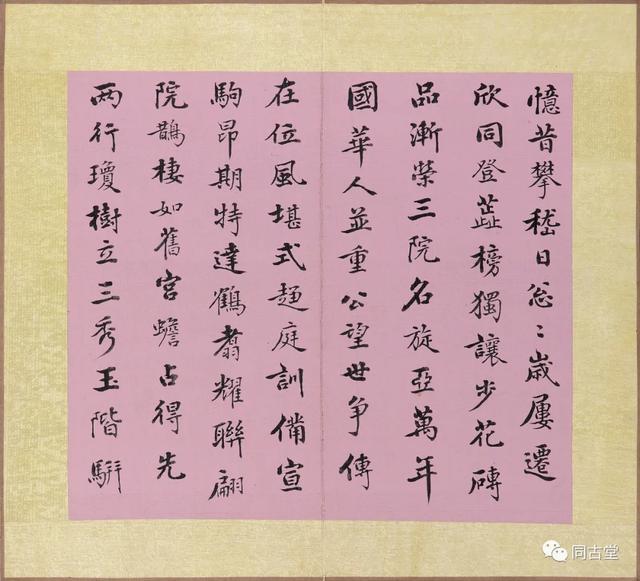 憶昔攀嵇日忩〻歲屢遷
欣同登蕋榜獨讓步花磚
品漸榮三院名旋亞萬年
國華人並重公望世爭傳
在位風堪式趨庭訓備宣
駒昂期特達鶴翥耀聯翩
院鵲棲如舊宮蟾占得先
兩行瓊樹立三秀玉階駢
同古堂